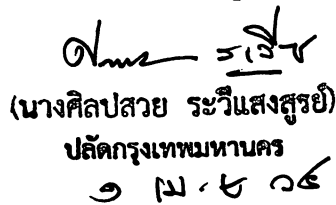 (นางศิลปสวย ระวีแสงสูรย์)
ปลัดกรุงเทพมหานคร
๑ เม.ย. ๖๔